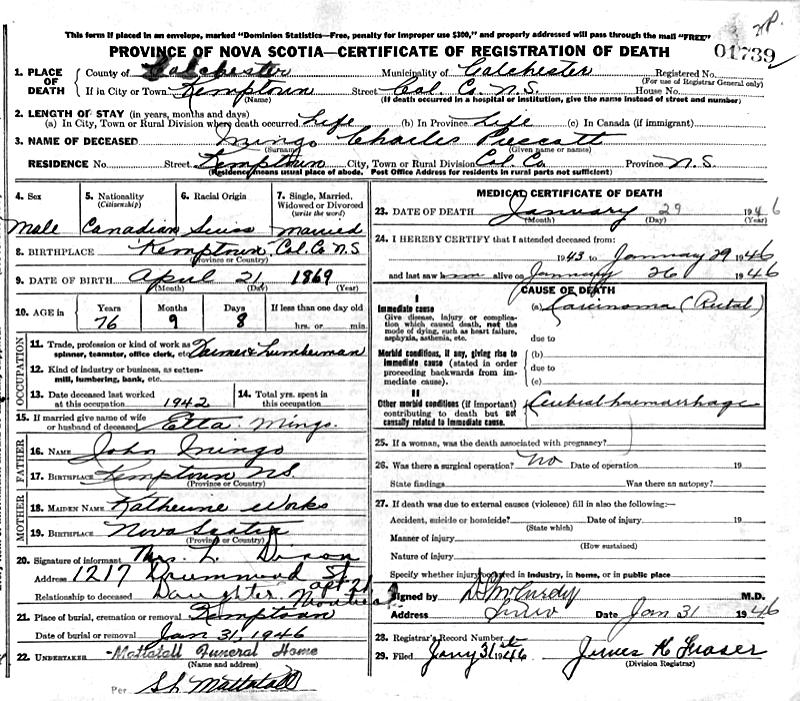 This form if placed in an envelope, marked "Dominion Statistics—Free, penalty for improper use $300," and properly addressed will pass through the mail "FREE"
PROVINCE OF NOVA SCOTIA—CERTIFICATE OF REGISTRATION OF DEATH
01739
1. PLACE OF DEATH
County of Colchester Municipality of Colchester Registered No.
(For use of Registrar General only)
If in City or Town Kemptown Street Col. Co. N.S. House No.
(Name) (If death occurred in a hospital or institution, give the name instead of street and number)
2. LENGTH OF STAY (in years, months and days)
(a) In City, Town or Rural Division where death occurred Life (b) In Province Life (c) In Canada (if immigrant)
3. NAME OF DECEASED Mingo Charles
(Surname) (Given name or names)
RESIDENCE No. Street Kemptown City, Town or Rural Division Col. Co. Province N.S.
(Residence means usual place of abode. Post Office Address for residents in rural parts not sufficient)
4. Sex
Male
5. Nationality
(Citizenship)
Canadian
6. Racial Origin
Swiss
7. Single, Married, Widowed or Divorced
(write the word)
married
8. BIRTHPLACE Kemptown, Col. Co N.S
(Province or Country)
9. DATE OF BIRTH April 21 1869
(Month) (Day) (Year)
10. AGE in Years Months Days If less than one day old
76 9 8 hrs. or min.
OCCUPATION
11. Trade, profession or kind of work as spinner, teamster, office clerk, etc. Farmer & Lumberman
12. Kind of industry or business, as cotten-mill, lumbering, bank, etc.
13. Date deceased last worked at this occupation 1942
14. Total yrs. spent in this occupation
15. If married give name of wife or husband of deceased Etta Mingo.
FATHER
16. NAME John Mingo
17. BIRTHPLACE Kemptown N.S.
(Province or Country)
MOTHER
18. MAIDEN NAME Katherine Works
19. BIRTHPLACE Nova Scotia
(Province or Country)
20. Signature of informant Mrs. L.
Address 1217 Drummond St
Relationship to deceased Daughter. Montreal
21. Place of burial, cremation or removal Kemptown
Date of burial or removal Jan 31, 1946
22. UNDERTAKER Mattatall Funeral Home
(Name and address)
Per Mattatall
MEDICAL CERTIFICATE OF DEATH
23. DATE OF DEATH January 29 1946
(Month) (Day) (Year)
24. I HEREBY CERTIFY that I attended deceased from:
1943 to January 29 1946
and last saw him alive on January 26 1946
CAUSE OF DEATH
I
Immediate cause
Give disease, injury or complication which caused death, not the mode of dying, such as heart failure, asphyxia, asthenia, etc.
(a) Carcinoma (Rectal)
due to
Morbid conditions, if any, giving rise to immediate cause (stated in order proceeding backwards from immediate cause).
(b)
due to
(c)
II
Other morbid conditions (if important) contributing to death but not causally related to immediate cause.
Cerebral haemorrhage
25. If a woman, was the death associated with pregnancy?
26. Was there a surgical operation? No Date of operation 19
State findings Was there an autopsy?
27. If death was due to external causes (violence) fill in also the following:—
Accident, suicide or homicide? Date of injury 19
(State which)
Manner of injury
(How sustained)
Nature of injury
Specify whether injury occurred in industry, in home, or in public place
Signed by McCurdy M.D.
Address Truro Date Jan 31 1946
28. Registrar's Record Number
29. Filed Jany 31st 1946 James Fraser
(Division Registrar)